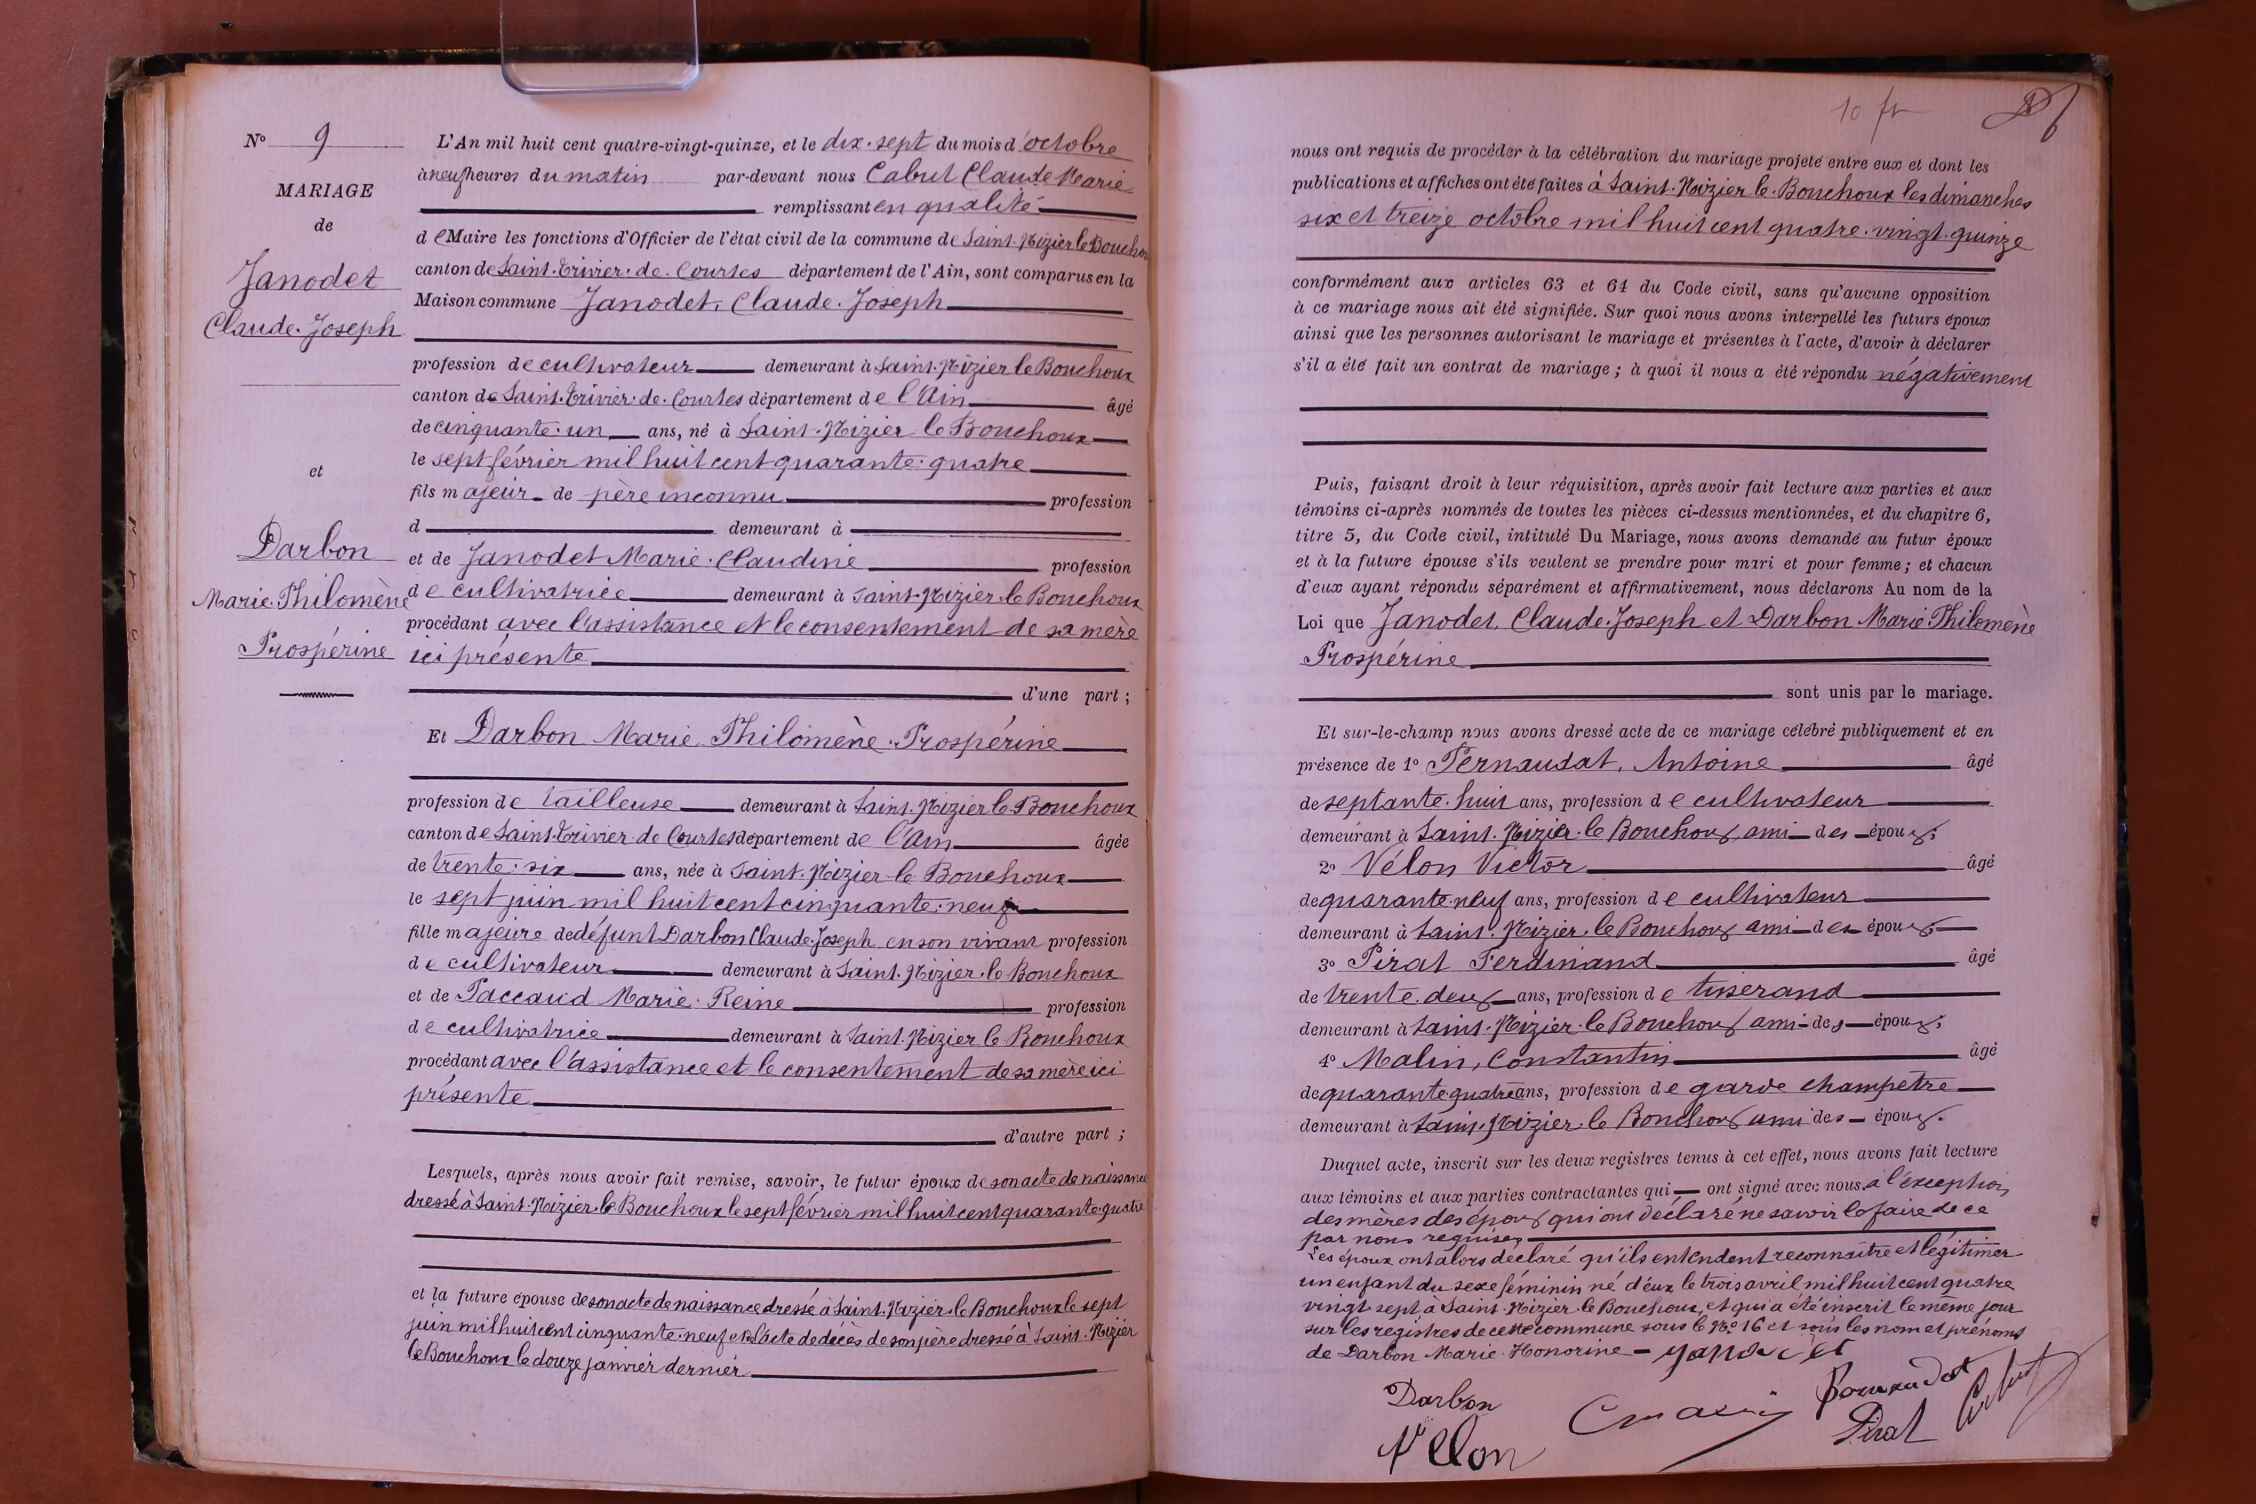 N° 9
MARIAGE
de
Janodet
Claude-Joseph
et
Darbon
Marie-Philomène
Prospérine
L'An mil huit cent quatre-vingt-quinze, et le dix-sept du mois d'octobre
à neuf heures du matin par-devant nous Cabut Claude Marie
remplissant en qualité
de Maire les fonctions d'Officier de l'état civil de la commune de Saint-Nizier le Bouchoux
canton de Saint-Trivier-de-Courtes département de l'Ain, sont comparus en la
Maison commune Janodet, Claude-Joseph
profession de cultivateur demeurant à Saint-Nizier le Bouchoux
canton de Saint-Trivier-de-Courtes département de l'Ain âgé
de cinquante-un ans, né à Saint-Nizier le Bouchoux
le sept février mil huit cent quarante-quatre
fils majeur de père inconnu profession
d demeurant à
et de Janodet Marie-Claudine profession
de cultivatrice demeurant à Saint-Nizier le Bouchoux
procédant avec l'assistance et le consentement de sa mère
ici présente
d'une part ;
Et Darbon Marie Philomène-Prospérine
profession de tailleuse demeurant à Saint-Nizier le Bouchoux
canton de Saint-Trivier-de-Courtes département de l'Ain âgée
de trente-six ans, née à Saint-Nizier le Bouchoux
le sept juin mil huit cent cinquante-neuf
fille majeure de défunt Darbon Claude-Joseph en son vivant profession
de cultivateur demeurant à Saint-Nizier-le Bouchoux
et de Paccaud Marie-Reine profession
de cultivatrice demeurant à Saint-Nizier le Bouchoux
procédant avec l'assistance et le consentement de sa mère ici
présente
d'autre part ;
Lesquels, après nous avoir fait remise, savoir, le futur époux de son acte de naissance
dressé à Saint-Nizier-le Bouchoux le sept février mil huit cent quarante-quatre
et la future épouse de son acte de naissance dressé à Saint-Nizier-le Bouchoux le sept
juin mil huit cent cinquante-neuf et de l'acte de décès de son père dressé à Saint-Nizier
le Bouchoux le douze janvier dernier
10 fr
nous ont requis de procéder à la célébration du mariage projeté entre eux et dont les
publications et affiches ont été faites à Saint-Nizier le Bouchoux les dimanches
six et treize octobre mil huit cent quatre-vingt-quinze
conformément aux articles 63 et 64 du Code civil, sans qu'aucune opposition
à ce mariage nous ait été signifiée. Sur quoi nous avons interpellé les futurs époux
ainsi que les personnes autorisant le mariage et présentes à l'acte, d'avoir à déclarer
s'il a été fait un contrat de mariage ; à quoi il nous a été répondu négativement
Puis, faisant droit à leur réquisition, après avoir fait lecture aux parties et aux
témoins ci-après nommés de toutes les pièces ci-dessus mentionnées, et du chapitre 6,
titre 5, du Code civil, intitulé Du Mariage, nous avons demandé au futur époux
et à la future épouse s'ils veulent se prendre pour mari et pour femme ; et chacun
d'eux ayant répondu séparément et affirmativement, nous déclarons Au nom de la
Loi que Janodet, Claude-Joseph et Darbon Marie-Philomène
Prospérine
sont unis par le mariage.
Et sur-le-champ nous avons dressé acte de ce mariage célébré publiquement et en
présence de 1° Pernaudat, Antoine âgé
de septante-huit ans, profession de cultivateur
demeurant à Saint-Nizier-le Bouchoux ami des époux;
2° Vélon Victor âgé
de quarante-neuf ans, profession de cultivateur
demeurant à Saint-Nizier-le Bouchoux ami des époux
3° Pirat Ferdinand âgé
de trente-deux ans, profession de tisserand
demeurant à Saint-Nizier-le Bouchoux ami des époux;
4° Malin, Constantin âgé
de quarante quatre ans, profession de garde champetre
demeurant à Saint-Nizier-le Bouchoux ami des époux.
Duquel acte, inscrit sur les deux registres tenus à cet effet, nous avons fait lecture
aux témoins et aux parties contractantes qui ont signé avec nous à l'exception
des mères des époux qui ont déclaré ne savoir le faire de ce
par nous requises
Les époux ont alors déclaré qu'ils entendent reconnaître et légitimer
un enfant du sexe féminin né d'eux le trois avril mil huit cent quatre
vingt-sept à Saint-Nizier-le Bouchoux, et qui a été inscrit le même jour
sur les registres de cette commune sous le N° 16 et sous les nom et prénoms
de Darbon Marie-Honorine - Janodet
Darbon
Pernaudat
Cabut
Vélon
Pirat